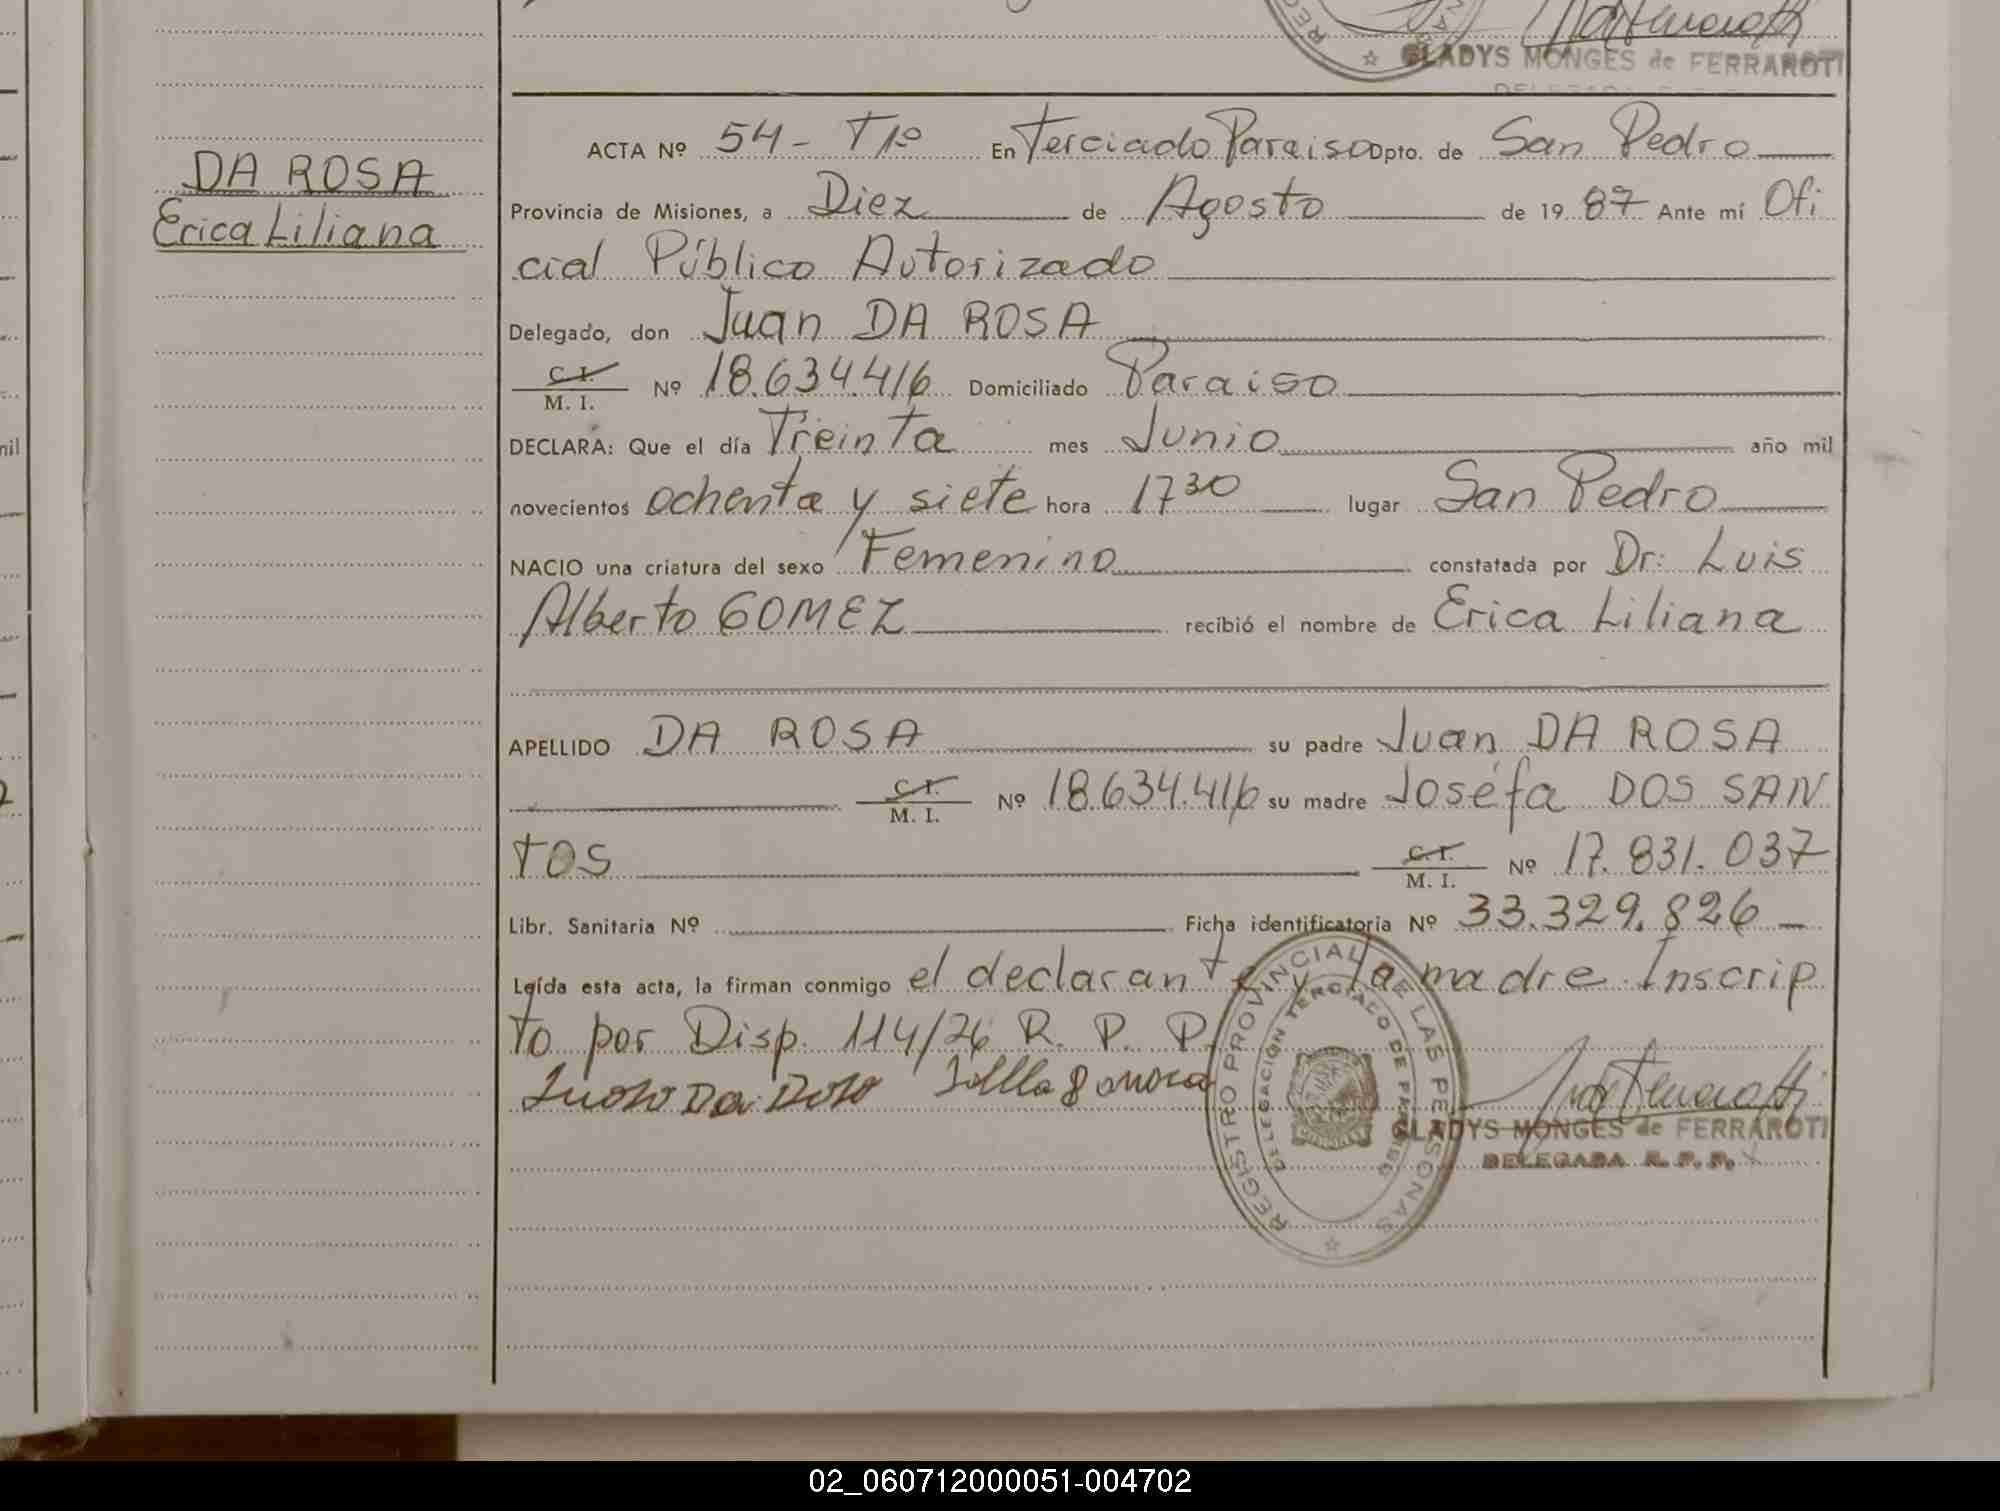 GLADYS MONGES de FERRAROTI
DA ROSA
Erica Liliana
ACTA Nº 54 - T 1º En Terciado Paraiso Dpto. de San Pedro
Provincia de Misiones, a Diez de Agosto de 19 87 Ante mí Ofi
cial Público Autorizado
Delegado, don Juan DA ROSA
C. I.
M. I. Nº 18.634.416 Domiciliado Paraiso
DECLARA: Que el día Treinta mes Junio año mil
novecientos ochenta y siete hora 17 30 lugar San Pedro
NACIO una criatura del sexo Femenino constatada por Dr: Luis
Alberto GOMEZ recibió el nombre de Erica Liliana
APELLIDO DA ROSA su padre Juan DA ROSA
C. I.
M. I. Nº 18.634.416 su madre Joséfa DOS SAN
TOS C. I.
M. I. Nº 17.831.037
Libr. Sanitaria Nº Ficha identificatoria Nº 33.329.826
Leída esta acta, la firman conmigo el declarante y la madre Inscrip
to por Disp. 114/76 R. P. P.
REGISTRO PROVINCIAL DE LAS PERSONAS
DELEGACION TERCIADO DE PARAISO
GLADYS MONGES de FERRAROTI
DELEGADA R. P. P.
02_060712000051-004702